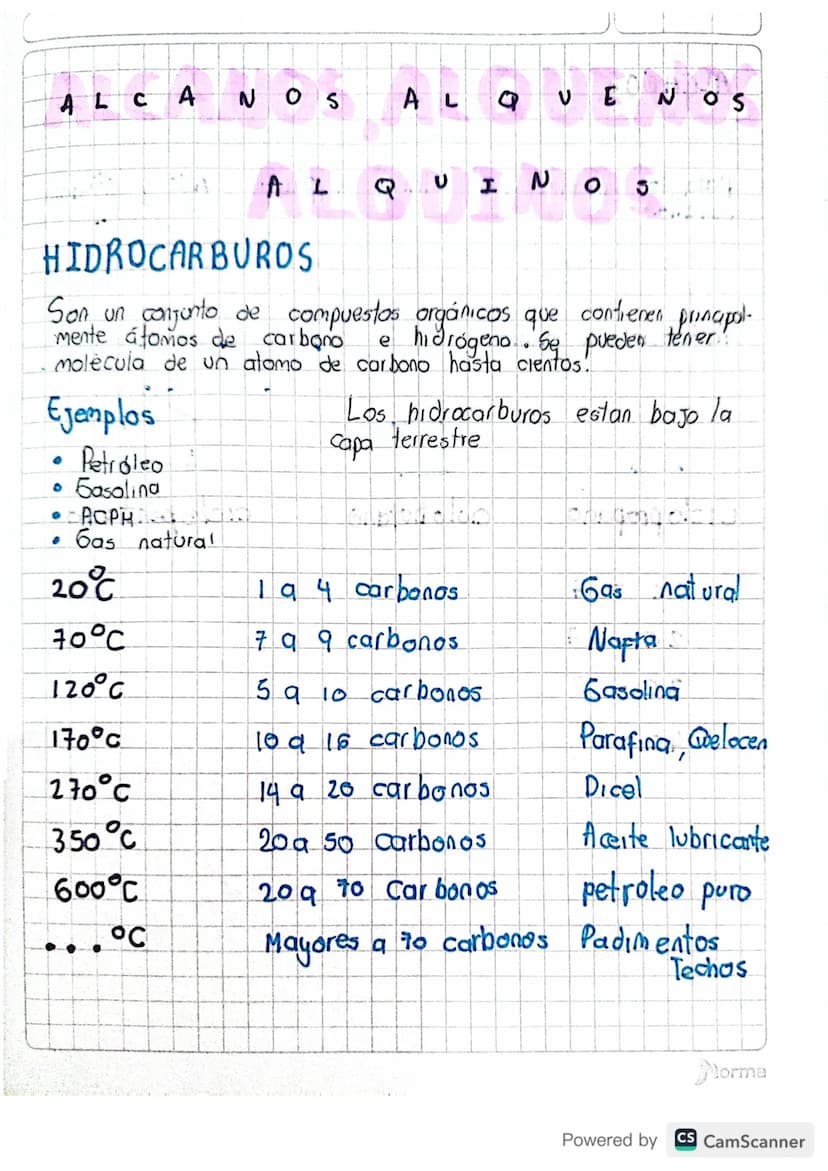 ALCANOS, ALQUENOS
ALQUINOS
HIDROCARBUROS
Son un conjunto de compuestos orgánicos que contienen principal-
mente átomos de carbono e hidrógeno. Se pueden tener
molécula de un atomo de carbono hasta cientos.
Ejemplos
Los hidrocarburos estan bajo la
capa terrestre
• Petróleo
• Gasolina
• ACPM
• Gas natural
20°C 1 a 4 carbonos Gas natural
70°C 7 a 9 carbonos Nafta
120°C 5 a 10 carbonos Gasolina
170°C 10 a 16 carbonos Parafina,
270°C 14 a 20 carbonos Dicel
350°C 20 a 50 carbonos Aceite lubricante
600°C 20 a 70 Carbonos petroleo puro
...°C Mayores a 70 carbonos Padimentos
Techos
Norma
Powered by CS CamScanner